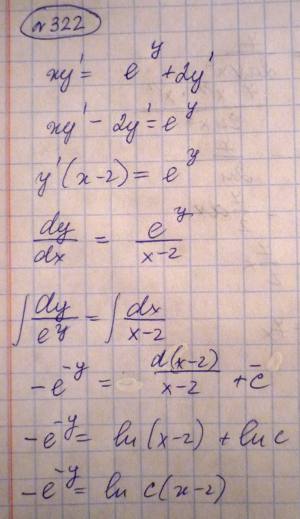 №322
xy' = e^y + 2y'
xy' - 2y' = e^y
y'(x-2) = e^y
dy/dx = e^y/(x-2)
∫ dy/e^y = ∫ dx/(x-2)
-e^-y = d(x-2)/(x-2) + c̄
-e^-y = ln(x-2) + ln c
-e^-y = ln c(x-2)